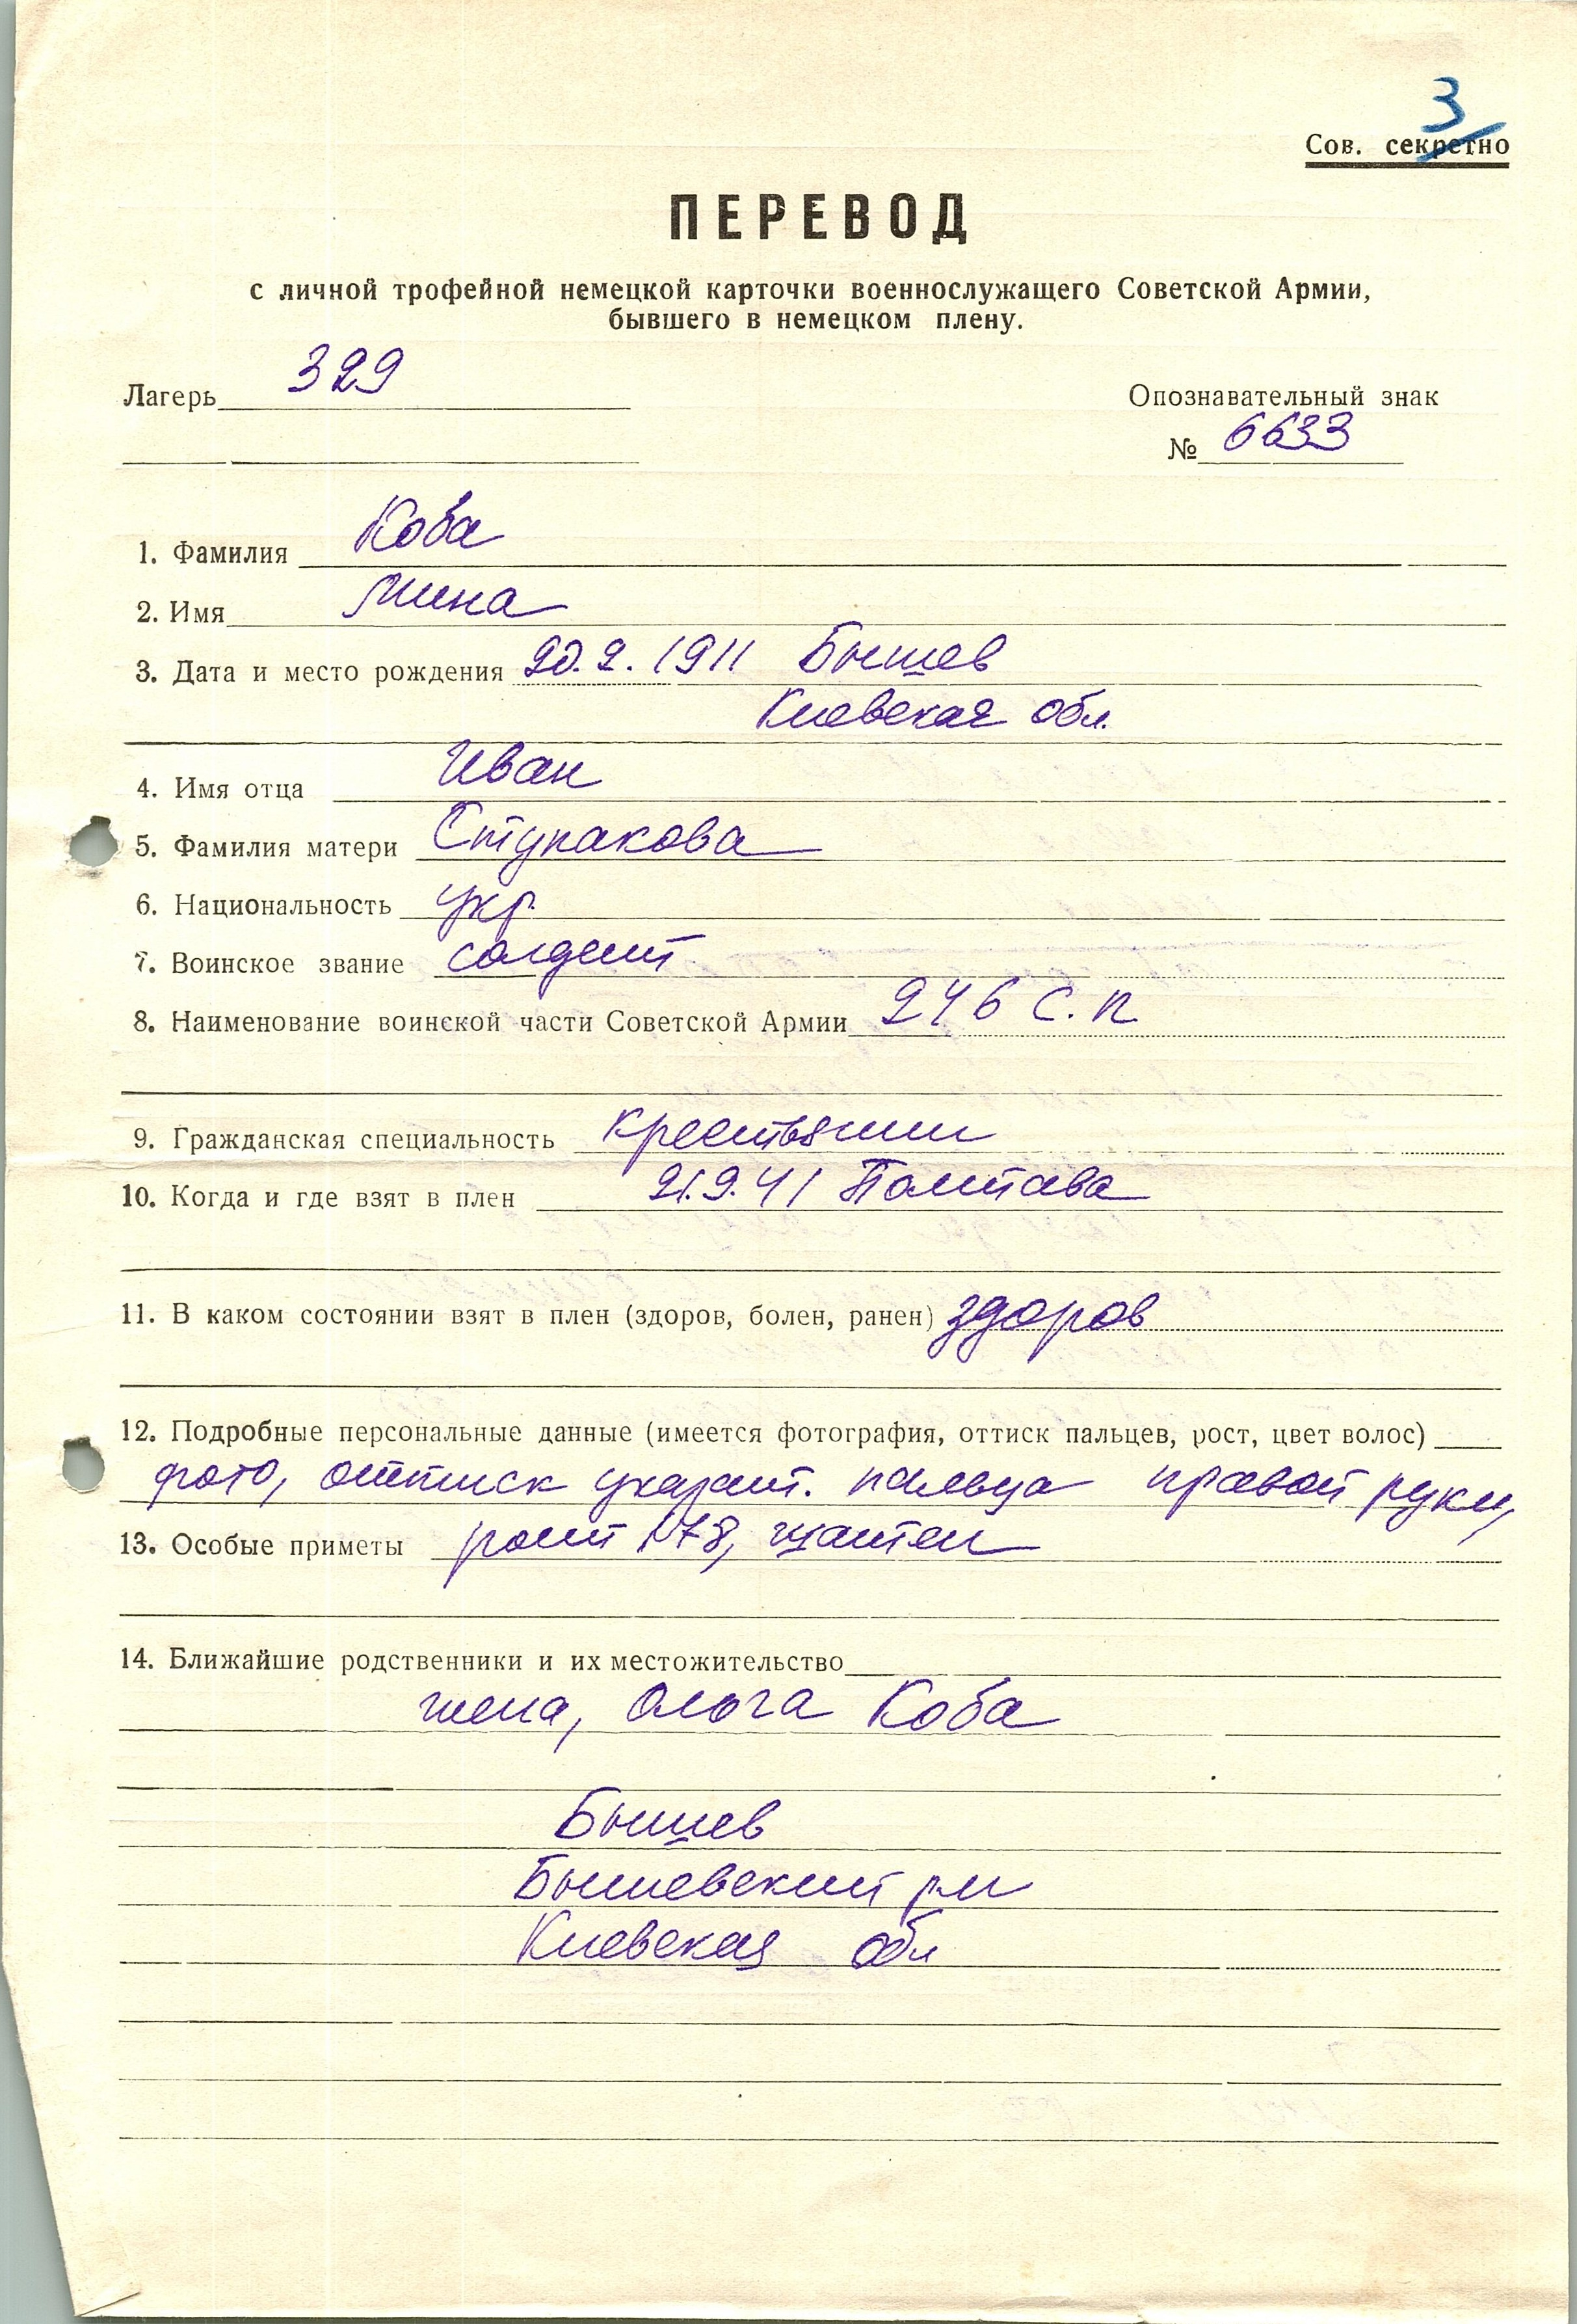 3
Сов. секретно
ПЕРЕВОД
с личной трофейной немецкой карточки военнослужащего Советской Армии,
бывшего в немецком плену.
Лагерь 329
Опознавательный знак
№ 6633
1. Фамилия Коба
2. Имя Мина
3. Дата и место рождения 20.2.1911 Бышев
Киевская обл.
4. Имя отца Иван
5. Фамилия матери Ступакова
6. Национальность укр.
7. Воинское звание солдат
8. Наименование воинской части Советской Армии 246 с.п.
9. Гражданская специальность крестьянин
10. Когда и где взят в плен 21.9.41 Полтава
11. В каком состоянии взят в плен (здоров, болен, ранен) здоров
12. Подробные персональные данные (имеется фотография, оттиск пальцев, рост, цвет волос)
фото, оттиск указат. пальца правой руки,
13. Особые приметы рост 178, шатен
14. Ближайшие родственники и их местожительство
жена, Ольга Коба
Бышев
Бышевский р-н
Киевская обл